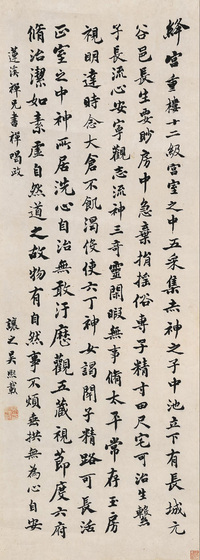 絳宮重樓十二級宮室之中五采集赤神之子中池立下有長城元
谷邑長生要眇房中急棄捐搖俗專子精寸田尺宅可治生繫
子長流心安寧觀志流神三奇靈閒暇無事脩太平常存玉房
視明達時念大倉不飢渴役使六丁神女謁閉子精路可長活
正室之中神所居洗心自治無敢汙歷觀五藏視節度六府
脩治潔如素虛自然道之故物有自然事不煩垂拱無為心自安
蓮溪禪兄書禪唱政
讓之吳熙載